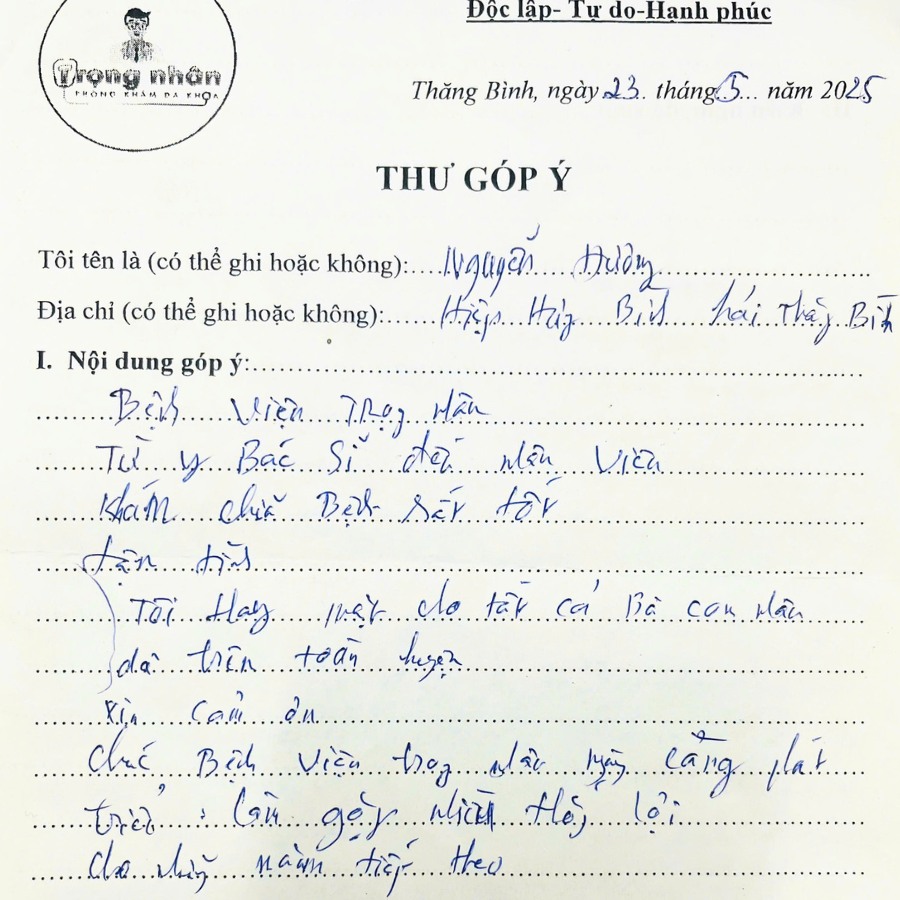 Độc lập- Tự do-Hạnh phúc
Trọng nhân
PHÒNG KHÁM ĐA KHOA
Thăng Bình, ngày 23 tháng 5 năm 2025
THƯ GÓP Ý
Tôi tên là (có thể ghi hoặc không): Nguyễn Hường
Địa chỉ (có thể ghi hoặc không): Hiệp Hưng Bình hải Thăng Bình
I. Nội dung góp ý:
Bệnh viện Trọng nhân
Từ y Bác Sĩ đến nhân viên
Khám chữa Bệnh rất tốt
tận tình
Tôi thay mặt cho tất cả Bà con nhân
dân trên toàn huyện
Xin cảm ơn
chúc Bệnh viện trọng nhân ngày càng phát
triển làm gặp nhiều thắng lợi
cho những năm tiếp theo